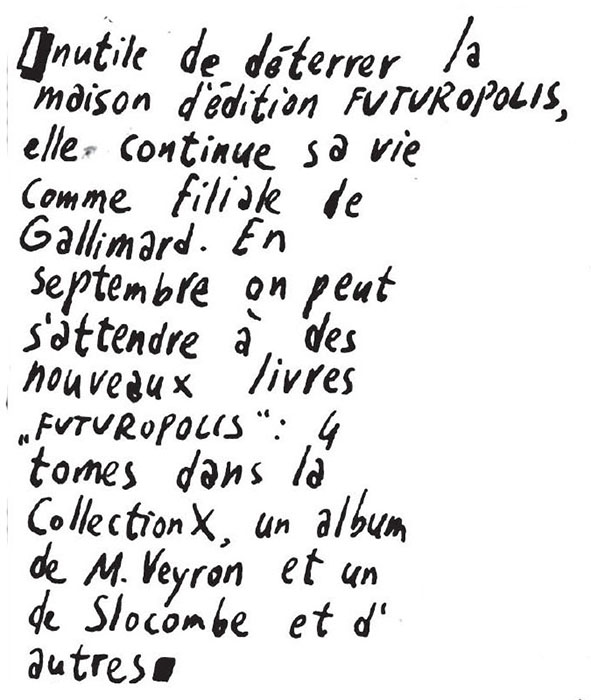 Inutile de déterrer la
maison d'édition FUTUROPOLIS,
elle continue sa vie
comme filiale de
Gallimard. En
septembre on peut
s'attendre à des
nouveaux livres
„FUTUROPOLIS“: 4
tomes dans la
Collection X, un album
de M. Veyron et un
de Slocombe et d'
autres